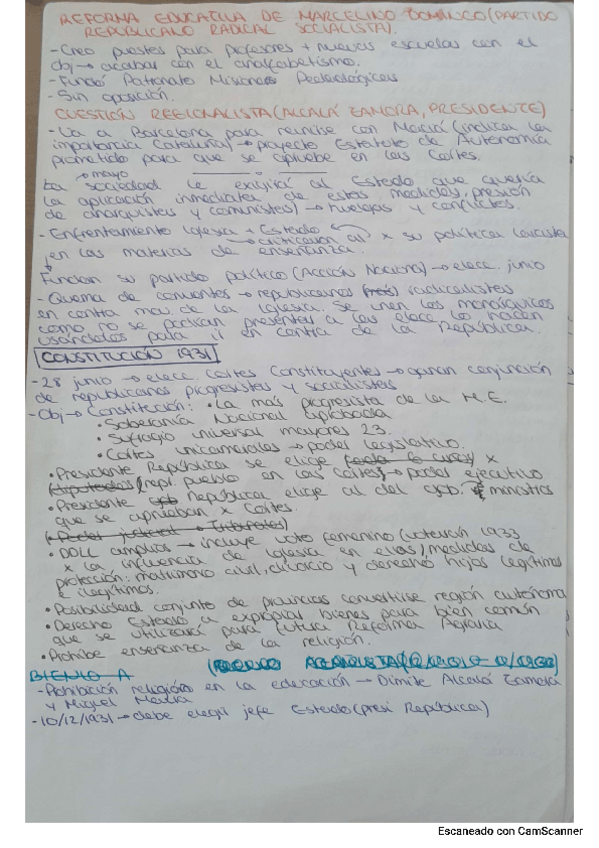 REFORMA EDUCATIVA DE MARCELINO DOMINGO (PARTIDO
REPUBLICANO RADICAL SOCIALISTA).
- Creo puestos para profesores + nuevas escuelas con el
obj → acabar con el analfabetismo.
- Fundó Patronato Misiones Pedagógicas
- Sin oposición.
CUESTIÓN REGIONALISTA (ALCALÁ ZAMORA, PRESIDENTE)
- Va a Barcelona para reunirse con Maciá (indica la
importancia Cataluña) → proyecto Estatuto de Autonomía
prometido para que se apruebe en las Cortes.
→ mayo
La sociedad le exigirá al Estado que quería
la aplicación inmediata de estas medidas, presión
de anarquistas y comunistas) → huelgas y conflictos.
- Enfrentamiento Iglesia + Estado
→ criticaron al x su política laicista
en las materias de enseñanza.
Fundan su partido político (Acción Nacional) → elecc. junio
- Quema de conventos → republicanos radicalistas
en contra mov. de la Iglesia. Se unen los monárquicos
como no se podían presentar a las elecc lo hacen
usándolos para ir en contra de la República.
CONSTITUCIÓN 1931
- 28 junio → elecc. Cortes Constituyentes → ganan conjunción
de republicanos progresistas y socialistas
- Obj → Constitución: • La más progresista de la H.E.
• Soberanía Nacional aprobada
• Sufragio universal mayores 23.
• Cortes unicamerales → poder legislativo.
• Presidente República se elige (cada 6 años) x
(diputados) (repr. pueblo en las Cortes) → poder ejecutivo
• Presidente gob República elige al del gob. y ministros
que se aprueban x Cortes.
(• Poder judicial → Tribunales)
• DDLL amplios → incluye voto femenino (votarán 1933
x la influencia de Iglesia en ellas), medidas de
protección: matrimonio civil, divorcio y derecho hijos legítimos
e ilegítimos.
• Posibilidad conjunto de provincias convertirse región autónoma
• Derecho Estado a expropiar bienes para bien común
que se utilizará para futura Reforma Agraria
• Prohíbe enseñanza de la religión.
BIENIO A
- Prohibición religión en la educación → Dimite Alcalá Zamora
y Miguel Maura
- 10/12/1931 → debe elegir jefe Estado (presi República)
Escaneado con CamScanner